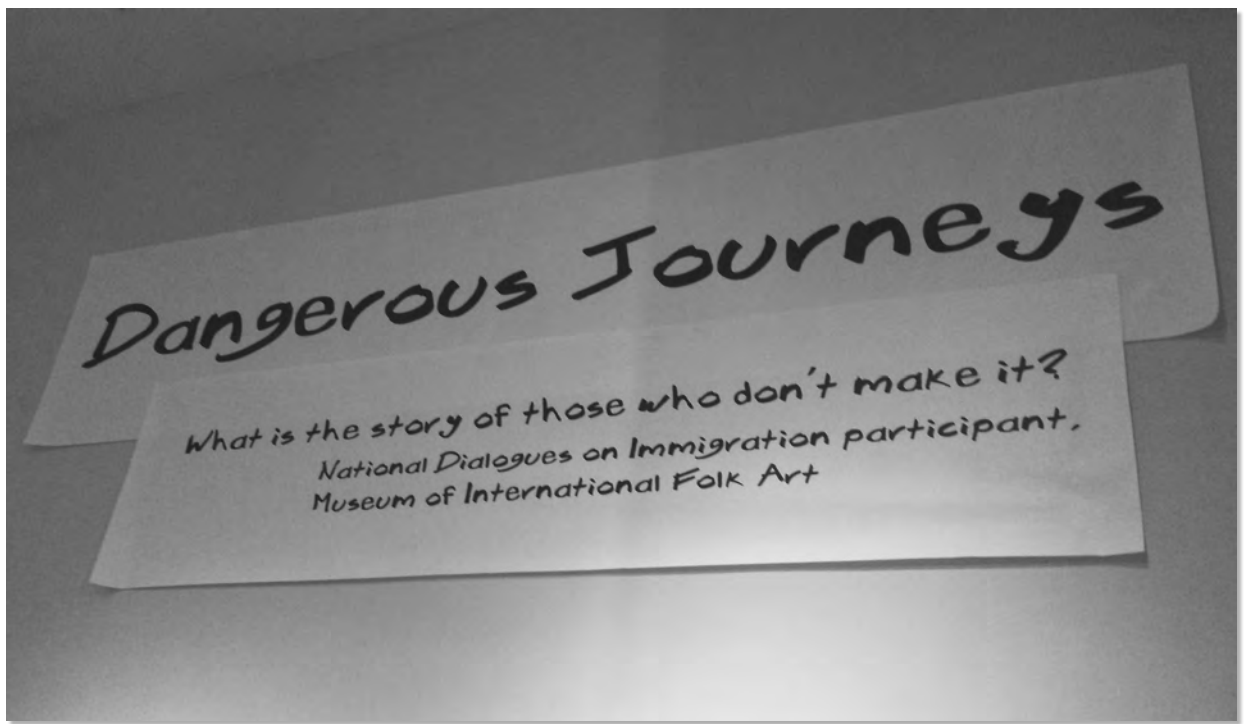 Dangerous Journeys
What is the story of those who don't make it?
National Dialogues on Immigration participant.
Museum of International Folk Art